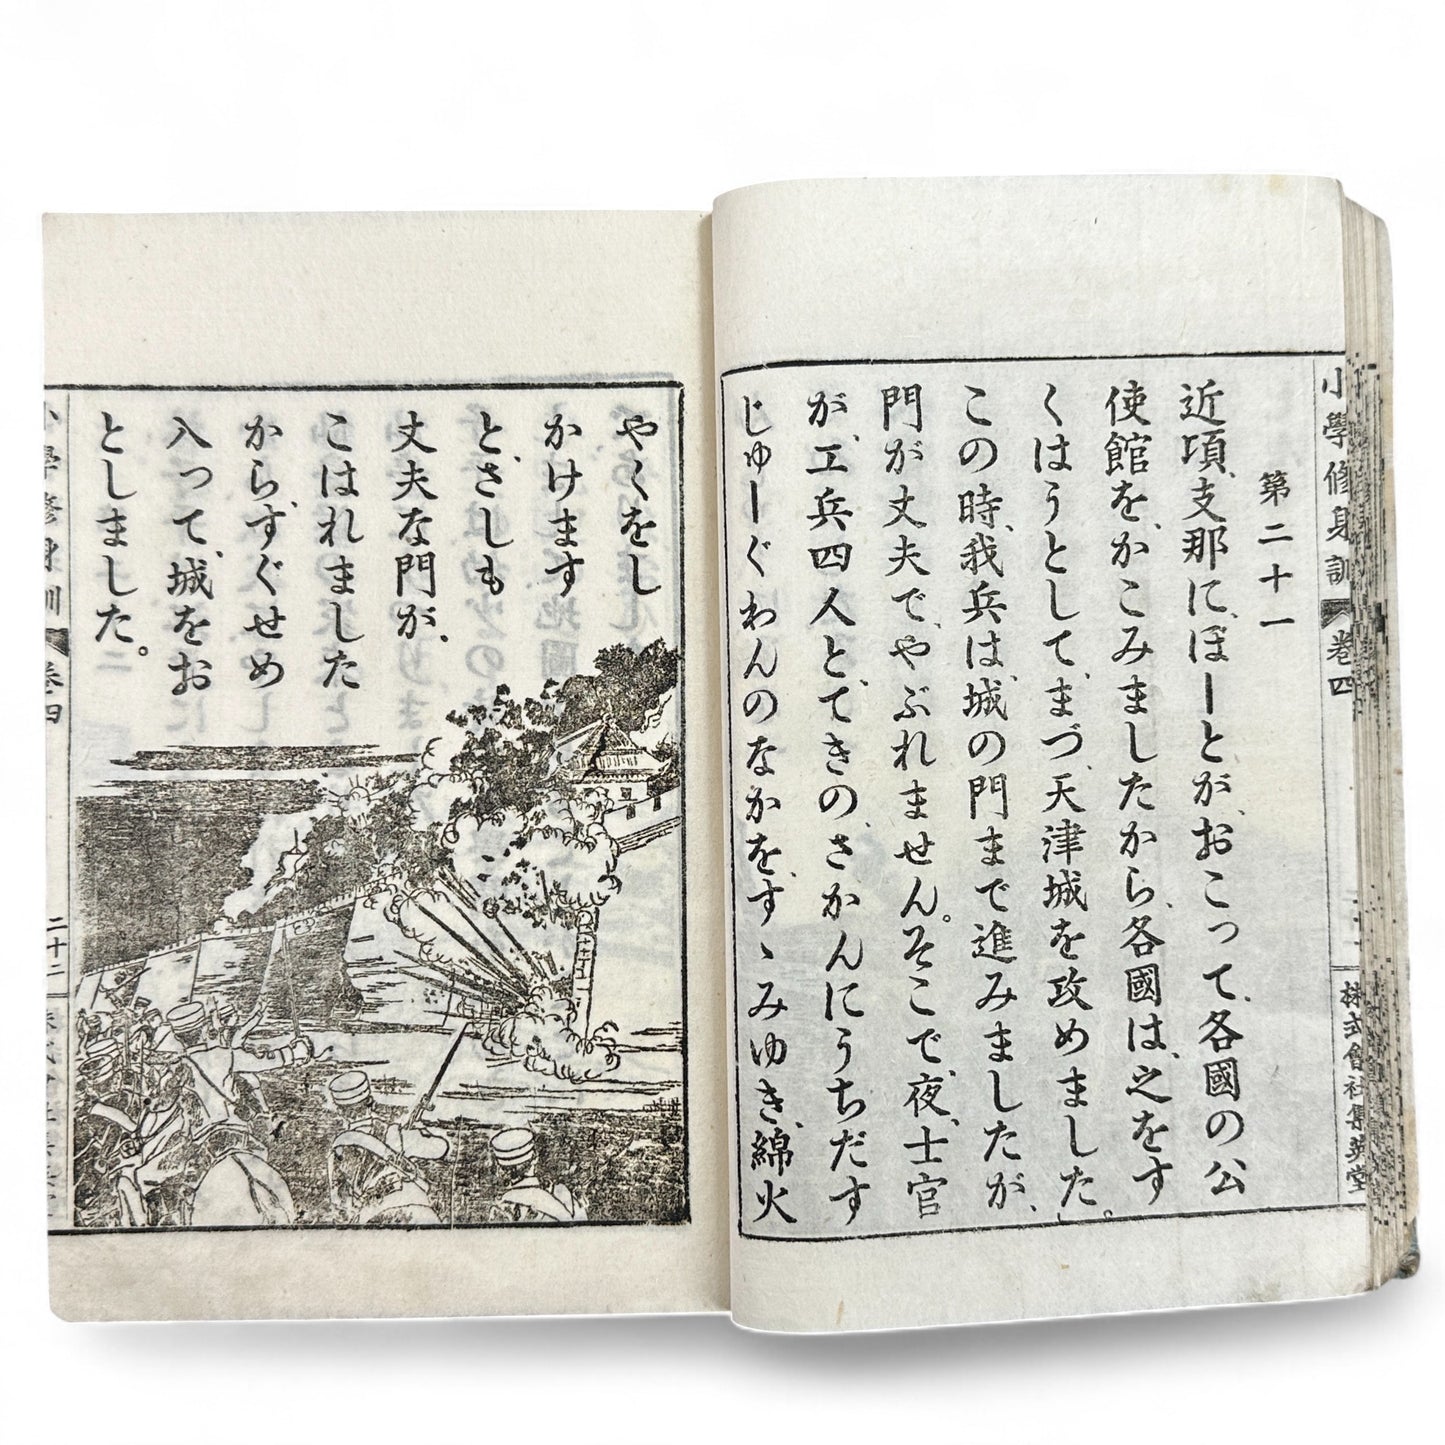 小學修身訓 卷四
株式會社集英堂
第二十一
近項、支那に、ぼーとが、おこって、各國の公
使館を、かこみましたから、各國は、之をす
くはうとして、まづ、天津城を攻めました。
この時、我兵は、城の門まで進みましたが、
門が丈夫で、やぶれません。そこで、夜、士官
が、工兵四人と、てきの、さかんにうちだす
じゅーぐわんのなかを、すゝみゆき、綿火
やくをし
かけます
と、さしも
丈夫な門が、
こはれました
から、すぐせめ
入って、城をお
としました。
小學修身訓 卷四
二十二